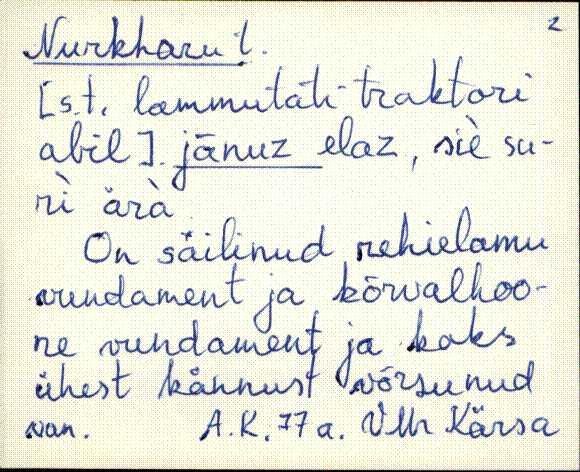 2
Nurkharu t.
[s.t. lammutati traktori
abil]. jānuz elaz, siè su-
rì ärà
On säilinud rehielamu
vundament ja kõrvalhoo-
ne vundament ja kaks
ühest kännust võrsunud
van. A.K. 77 a. VMr Kärsa